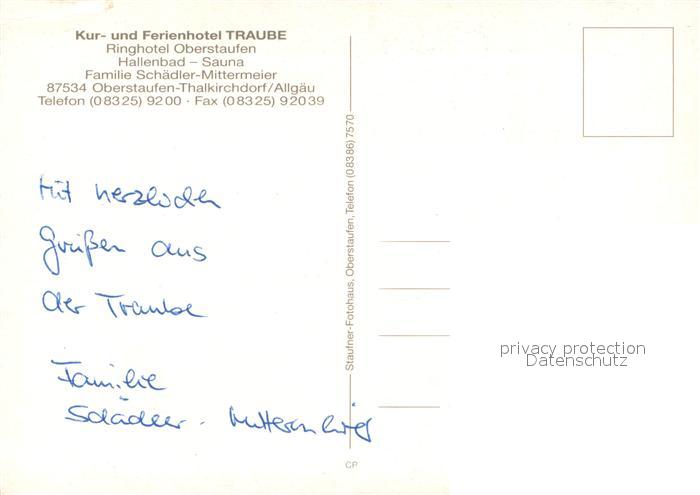 Kur- und Ferienhotel TRAUBE
Ringhotel Oberstaufen
Hallenbad – Sauna
Familie Schädler-Mittermeier
87534 Oberstaufen-Thalkirchdorf/Allgäu
Telefon (08325) 9200 · Fax (08325) 92039
Mit herzlichen
Grüßen aus
der Traube
Familie
Schädler - Mittermeier
Staufner-Fotohaus, Oberstaufen, Telefon (08386) 7570
CP
privacy protection
Datenschutz